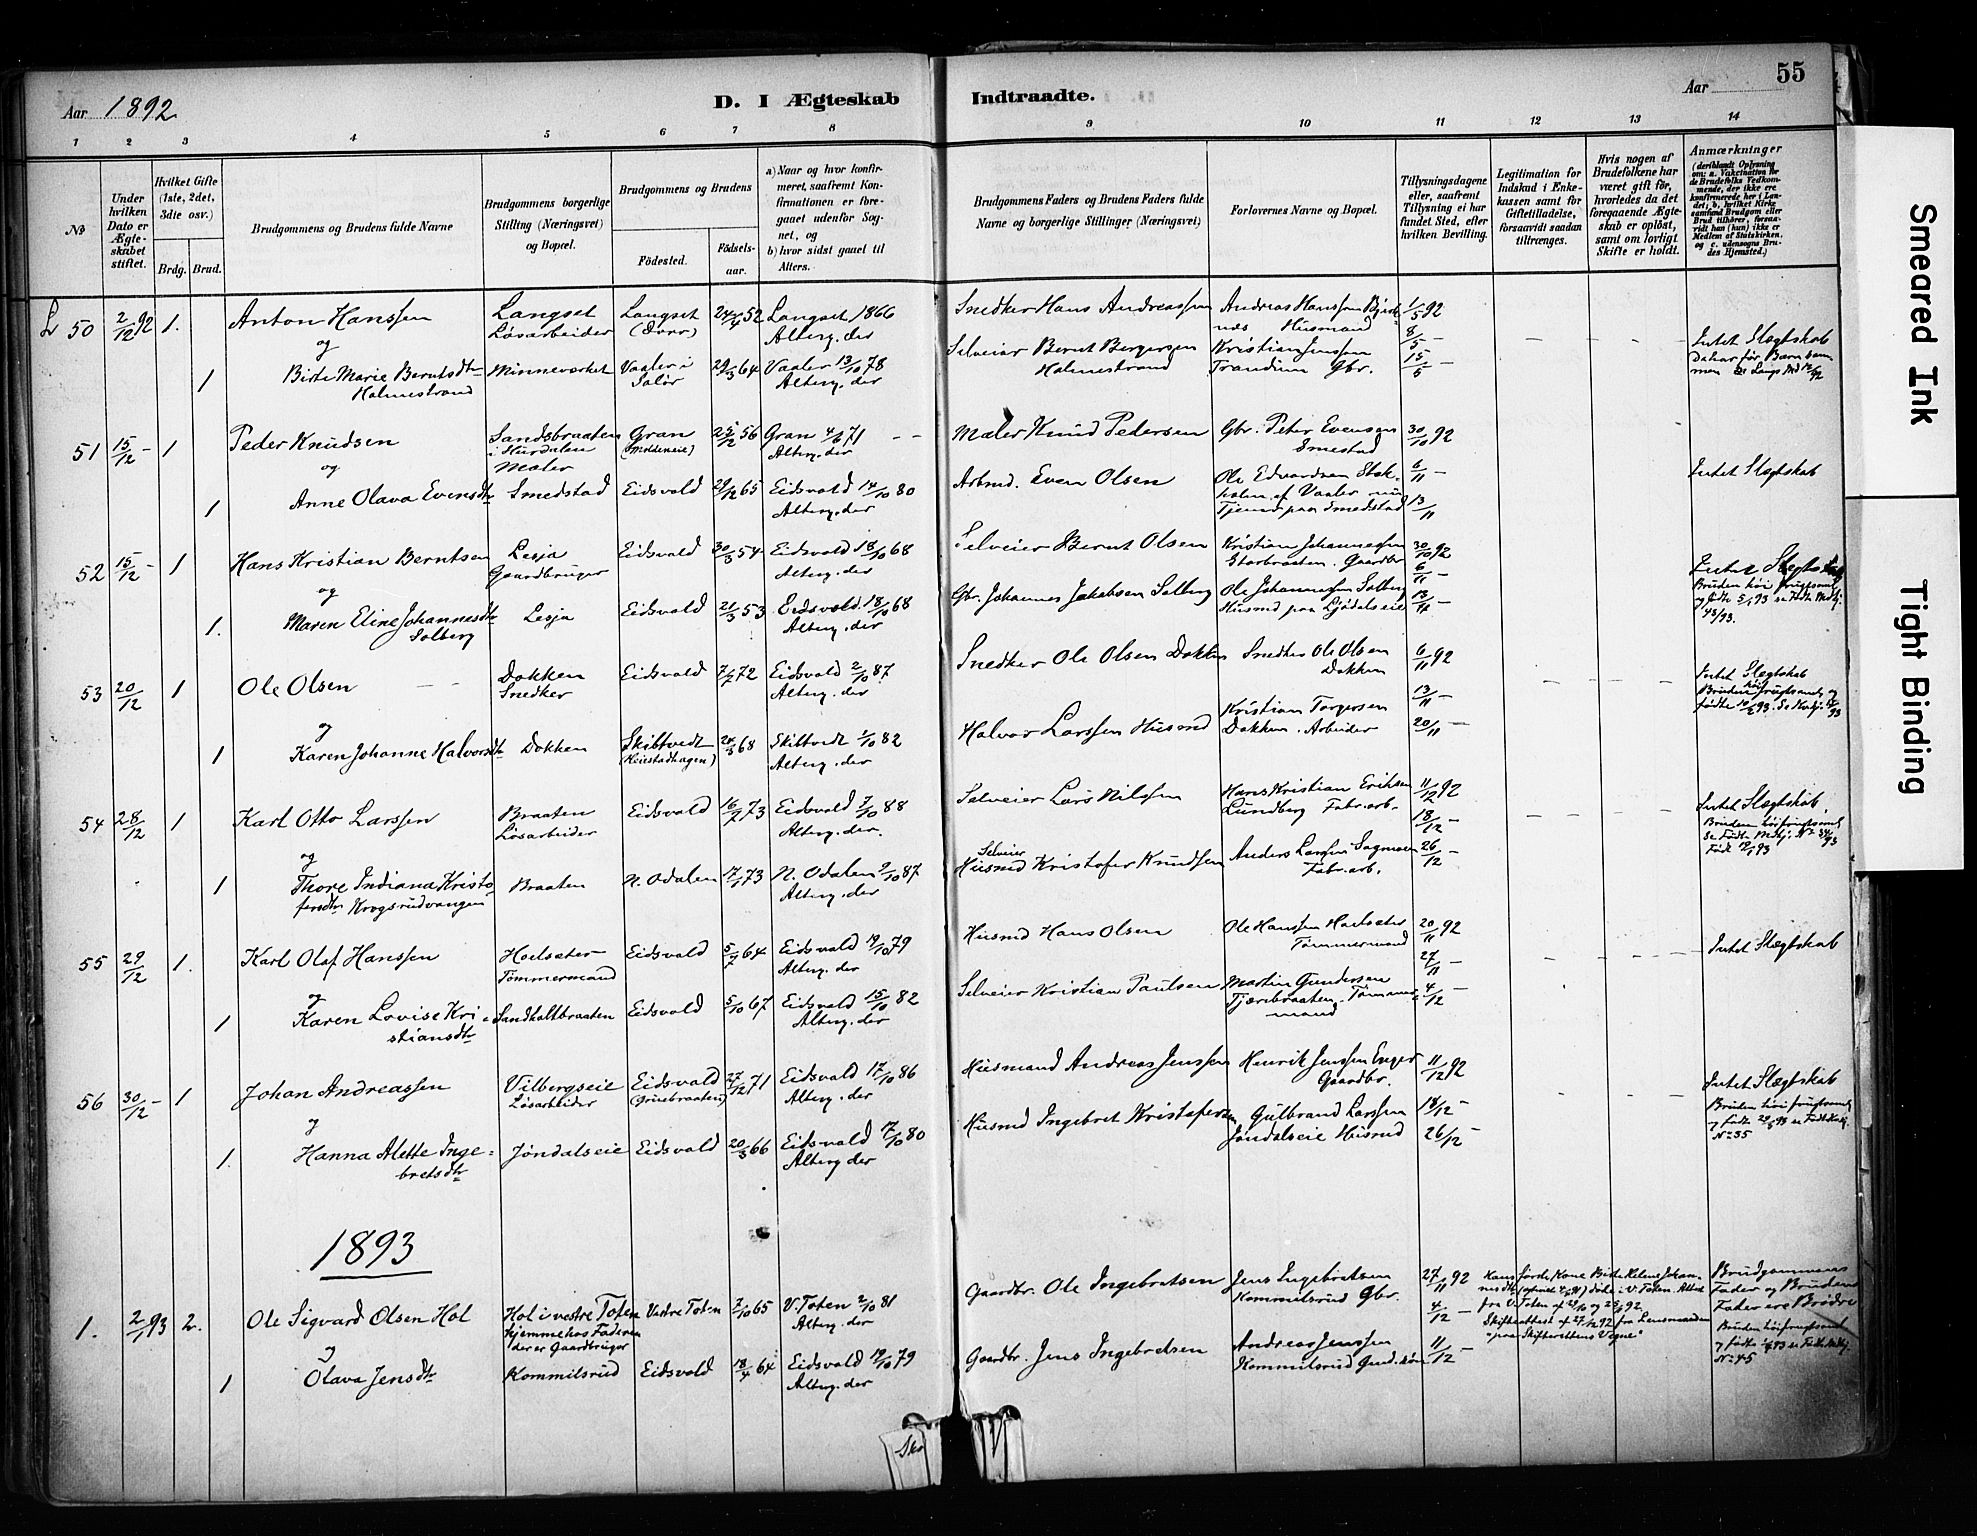 55
Aar 1892
D. I Ægteskab Indtraadte.
Aar
1 2 3 4 5 6 7 8 9 10 11 12 13 14
No
Under hvilken Dato er Ægteskabet stiftet.
Hvilket Gifte (1ste, 2det, 3die osv.)
Brdg. Brud.
Brudgommens og Brudens fulde Navne
Brudgommens borgerlige Stilling (Næringsvei) og Bopæl.
Brudgommens og Brudens
Fødested.
Fødselsaar.
a) Naar og hvor konfirmeret, saafremt Konfirmationen er foregaaet udenfor Sognet, og
b) hvor sidst gaaet til Alters.
Brudgommens Faders og Brudens Faders fulde Navne og borgerlige Stillinger (Næringsvei)
Forlovernes Navne og Bopæl.
Tillysningsdagene eller, saafremt Tillysning ei har fundet Sted, efter hvilken Bevilling.
Legitimation for Indskud i Enkekassen samt for Giftetilladelse, forsaavidt saadan tiltrænges.
Hvis nogen af Brudefolkene har været gift før, hvorledes da det foregaaende Ægteskab er opløst, samt om lovligt Skifte er holdt.
Anmærkninger
(deriblandt Oplysning om: a. Vaktination for de Brudefolks Vedkommende, der ikke ere konfirmerede her i Landet; b. hvilket Kirkesamfund Brudgom eller Brud tilhører, forsaavidt han (hun) ikke er Medlem af Statskirken, og c. udensogns Brudes Hjemsted.)
L 50 2/12 92 1. Anton Hanssen Langset Løsarbeider Langset 24/4 52 Langset 1866 Alterg. der
Snedker Hans Andreassen Andreas Hanssen Husmand 1/5 92
8/5 –
og
1 Birte Marie Berntsdtr Holmestrand Minneverket Vaaler i Solør 29/3 64 Vaaler 13/10 78 Alterg. der
Selveier Bernt Bergersen Holmestrand Kristian Jenssen Trandum Gbr. 15/5 –
Intet Slægtskab
51 15/12 – 1 Peder Knudsen Sandsbraaten i Hurdalen Maler Gran 25/12 56 Gran 4/6 71 Alterg. der
Maler Knud Pedersen Gbr. Peter Evensen Smestad 30/10 92
6/11 –
og
1 Anne Olava Evensdtr Smedstad Eidsvold 29/12 65 Eidsvold 14/10 80 Alterg. der
Arbmd. Even Olsen Ole Edvardsen af Vaaler Tjener paa Smedstad 13/11
Intet Slægtskab
52 15/12 – 1 Hans Kristian Berntsen Lesja Gaardbruger Eidsvold 30/3 54 Eidsvold 18/10 68 Alterg. der
Selveier Bernt Olsen Kristian Johannessen Storbraaten. Gaardbr 30/10 92
6/11 –
og
1. Maren Eline Johannesdtr Solberg Lesja Eidsvold 21/3 53 Eidsvold 18/10 68 Alterg. der
Gbr. Johannes Jakobsen Solberg Ole Johannessen Solberg Husmd paa 13/11 –
Intet Slægtskab
Bruden høi frugtsomt og fødte 5/1 93 se Fødte Mdkj. 43/93.
53 20/12 1 Ole Olsen Dokken Snedker Eidsvold 7/7 72 Eidsvold 2/10 87 Alterg. der
Snedker Ole Olsen Dokken Snedker Ole Olsen Dokken 6/11 92
13/11 –
og
1 Karen Johanne Halvorsdtr Dokken Skibtvedt 24/3 68 Skibtvedt 1/10 82 Alterg. der
Halvor Larssen Husmd Kristian Torgersen Dokken. Arbeider 20/11 –
Intet Slægtskab
Bruden høi frugtsomt og fødte
54 28/12 1 Karl Otto Larssen Braaten Løsarbeider Eidsvold 16/7 73 Eidsvold 7/10 88 Alterg. der.
Selveier Lars Nilssen Hans Kristian Eriksen Lundberg Fabr. arb. 11/12 92
18/12 –
og
1 Thore Indiana Kristofersdtr Krogsrudvangen Braaten N. Odalen 17/1 73 N. Odalen 9/10 87 Alterg. der
Selveier
Husmd Kristofer Knudsen Anders Larssen Fabr. arb. 26/12 –
Intet Slægtskab.
55 29/12 1. Karl Olaf Hanssen Hoelseter Tømmermand Eidsvold 5/7 64 Eidsvold 19/10 79 Alterg. der
Husmd Hans Olsen Ole Hanssen Hoelseter Tømmermand 20/11 92
27/11
og
1 Karen Lovise Kristiansdtr Sandholtbraaten Eidsvold 5/10 67 Eidsvold 15/10 82 Alterg. der
Selveier Kristian Paulsen Martin Gundersen Tjærebraaten. Tømmermand 4/12 –
Intet Slægtskab
56 30/12 – 1 Johan Andreassen Vilbergseie Løsarbeider Eidsvold 27/12 71 Eidsvold 17/10 86 Alterg. der
Husmand Andreas Jenssen Henrik Jenssen Enger Gaardbr. 11/12 92
18/12 –
og
1. Hanna Mette Ingebretsdtr Jøndalseie Eidsvold 20/3 66 Eidsvold 17/10 80 Alterg der
Husmd Ingebret Kristofersen Gulbrand Larssen Jøndalseie Husmd 26/12 –
Intet Slægtskab
Bruden høi frugtsomt og fødte No 35
1893
1. 2/1 93 2. Ole Sigvard Olsen Hol Hol i vestre Toten hjemme hos Faderen der er Gaardbruger Vestre Toten 7/10 65 V. Toten 2/10 81 Alterg. der
Gaardbr. Ole Ingebretsen Jens Ingebretsen Kommelsrud Gbr. 27/11 92
4/12 –
og
1 Olava Jensdtr Kommilsrud Eidsvold 18/4 64 Eidsvold 19/10 79 Alterg. der
Gaardbr. Jens Ingebretsen Andreas Jenssen Kommelsrud 11/12 –
Brudgommens Fader og Brudens Fader ere Brødre
Smeared Ink
Tight Binding